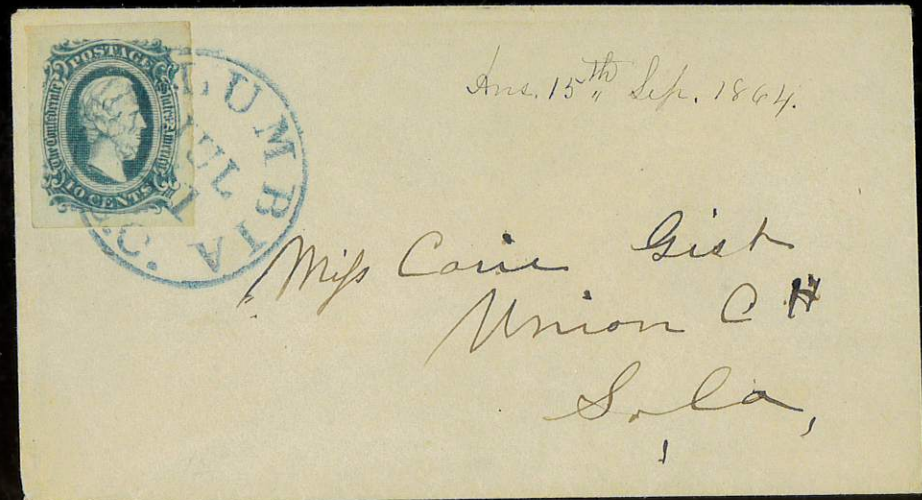 POSTAGE
The Confederate States of America
10 CENTS
COLUMBIA S.C.
JUL
1
Ans. 15th Sep. 1864.
Miss Carie Gist
Union C H
So. Ca,